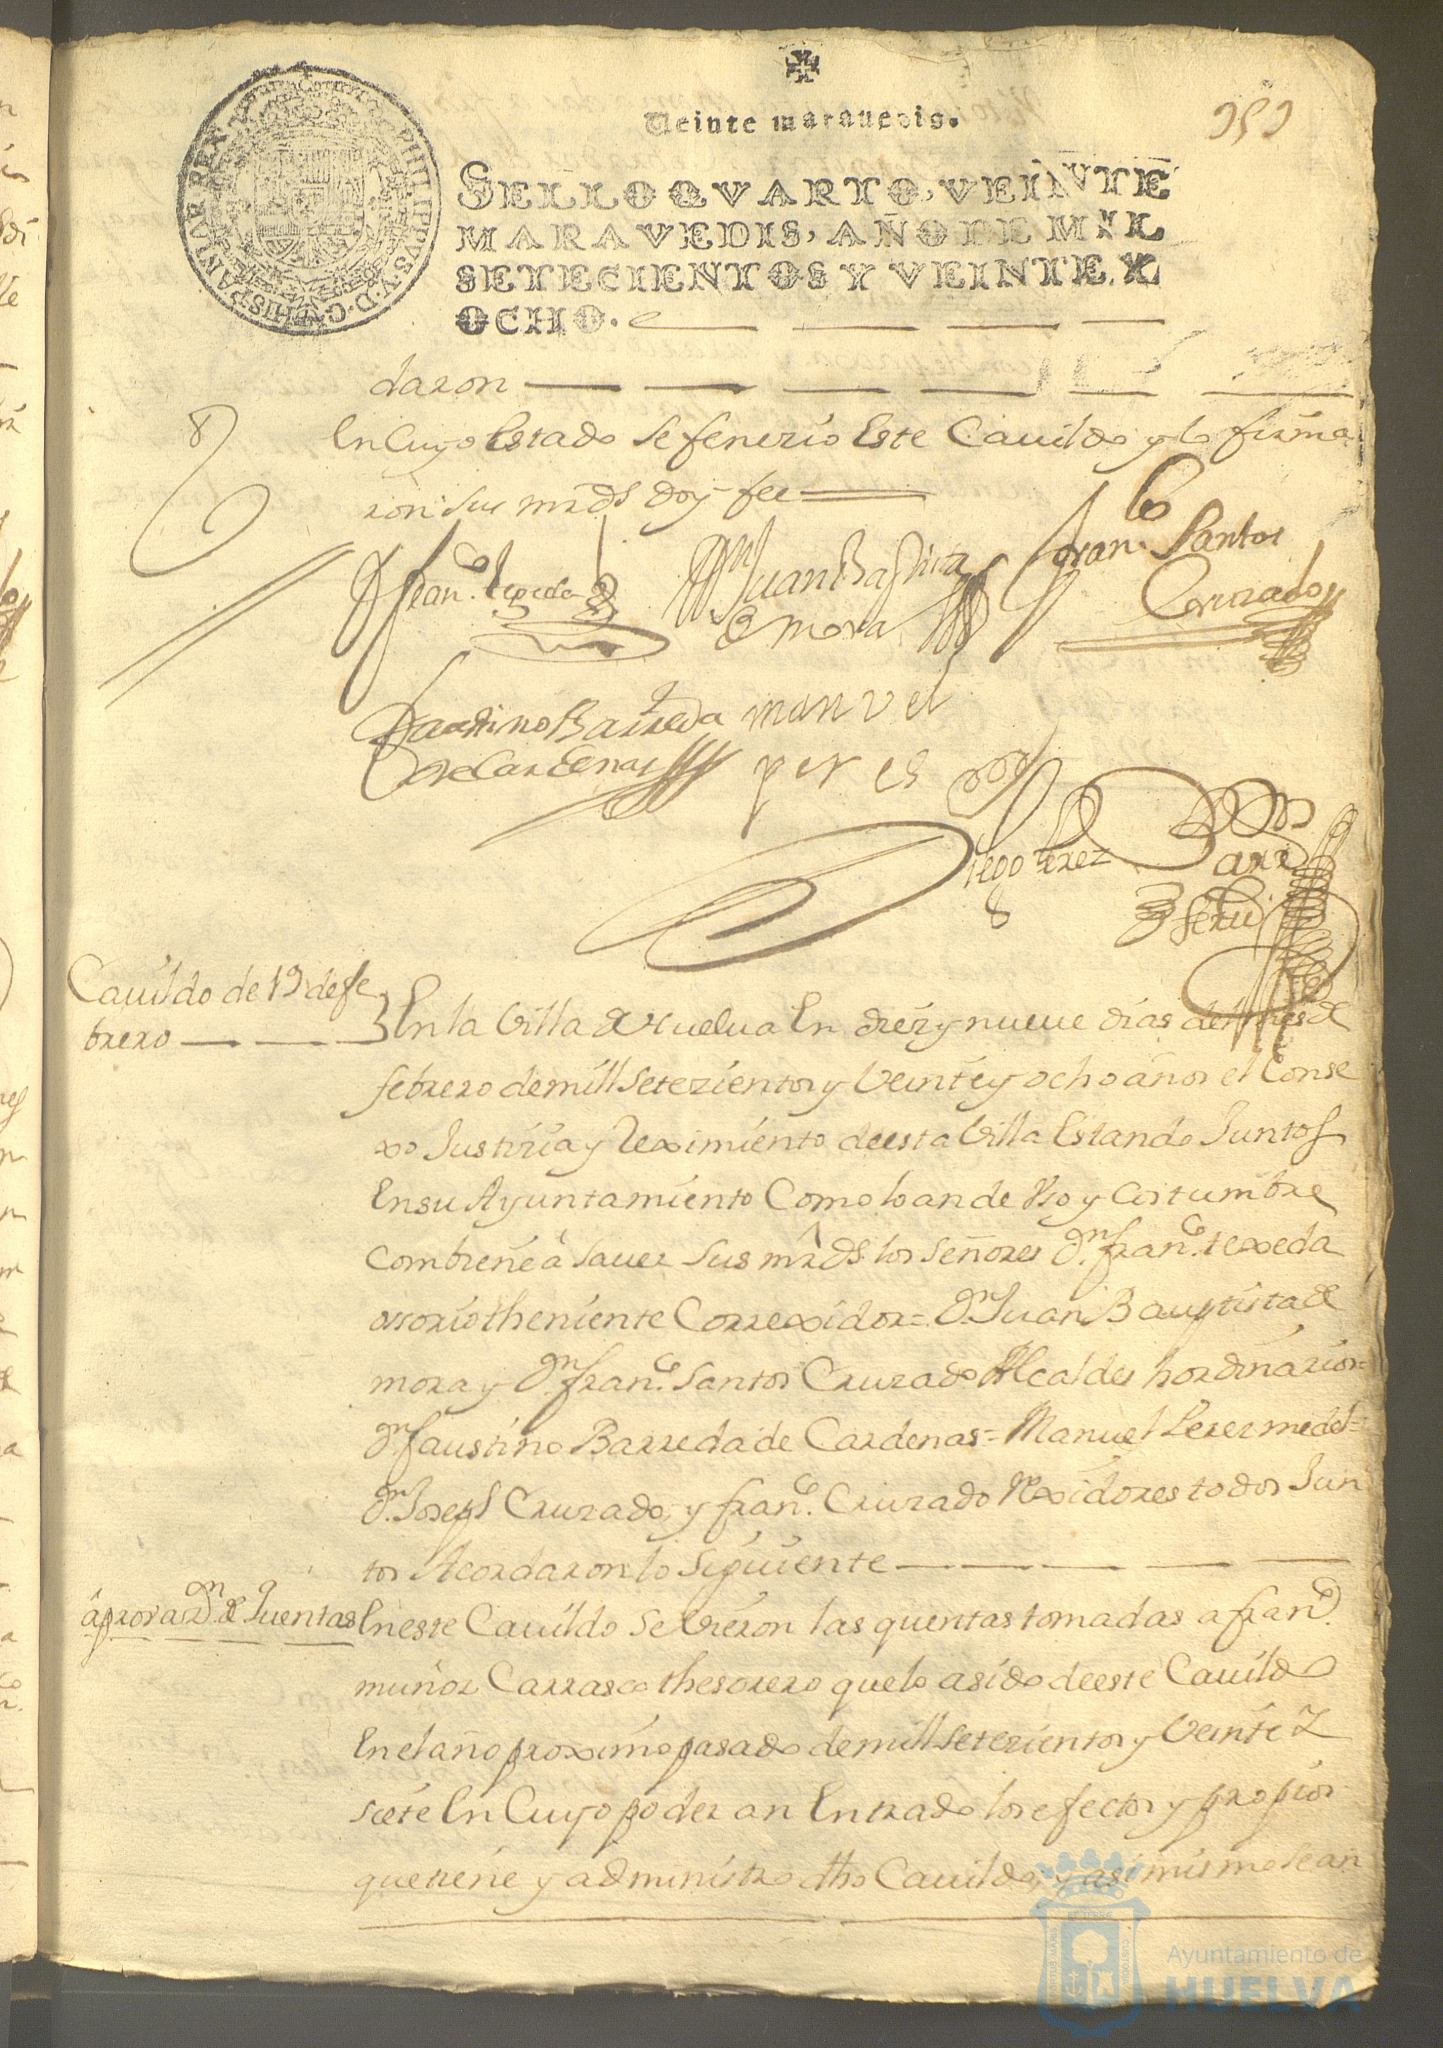 Veinte marauedis.
SELLO QVARTO, VEINTE
MARAVEDIS, AÑO DE MIL
SETECIENTOS Y VEINTE Y
OCHO.
daron
En Cuyo Estado se fenezio Este Cauildo y lo firma
ron sus mrds doy fee
Dn Franco texeda
Dn Juan Baptista
de mora
Franco Santos
Cruzado
Faustino Barreda
de Cardenas
manuel
perez
Diego Perez
Cauildo de 19 de fe
brero
En la Villa de Huelua En diez y nueue dias del mes de
febrero de mill setezientos y Veinte y ocho años el Conse
xo Justizia y Reximiento de esta Villa Estando Juntos
En su Ayuntamiento Como lo an de Vso y Costumbre
Combiene â sauer sus mrds. los señores Dn. franco. texeda
ossorio theniente Correxidor= Dn. Juan Bauptista de
mora y Dn. franco. santos Cruzado Alcaldes hordinarios=
Dn. faustino Barreda de Cardenas= Manuel Perez medel=
Dn. Joseph Cruzado, y franco. Cruzado Rexidores todos Jun
tos Acordaron lo siguiente
âprovazn. de Quentas
En este Cauildo se Vieron las quentas tomadas a franco.
muñoz Carrasco thesorero que lo a sido de este Cauildo
En el año proximo pasado de mill setezientos y Veinte Y
siete En Cuyo poder an Entrado los efectos y propios
que tiene y administra dho Cauildo, y asimismo se an
Ayuntamiento de
HUELVA